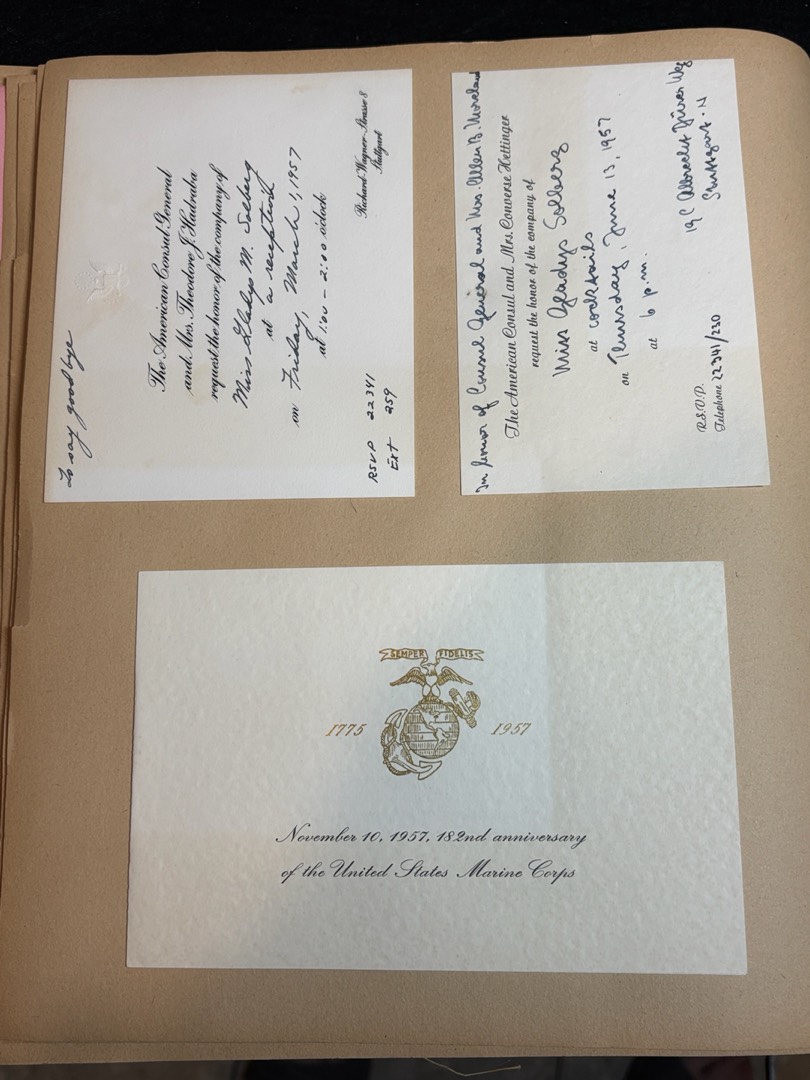 To say goodbye
The American Consul General
and Mrs. Theodore J. Hadraba
request the honor of the company of
Miss Gladys M. Solberg
at a reception
on Friday, March 1, 1957
at 1:00 - 2:00 o'clock
RSVP 22341
Ext 259
Richard-Wagner-Strasse 8
Stuttgart
In honor of Consul General and Mrs. Allen B. Moreland
The American Consul and Mrs. Converse Hettinger
request the honor of the company of
Miss Gladys Solberg
at cocktails
on Thursday, June 13, 1957
at 6 p.m.
R.S.V.P.
Telephone 22341/230
19 C Albrecht Dürer Weg
Stuttgart-N
SEMPER FIDELIS
1775 1957
November 10, 1957, 182nd anniversary
of the United States Marine Corps